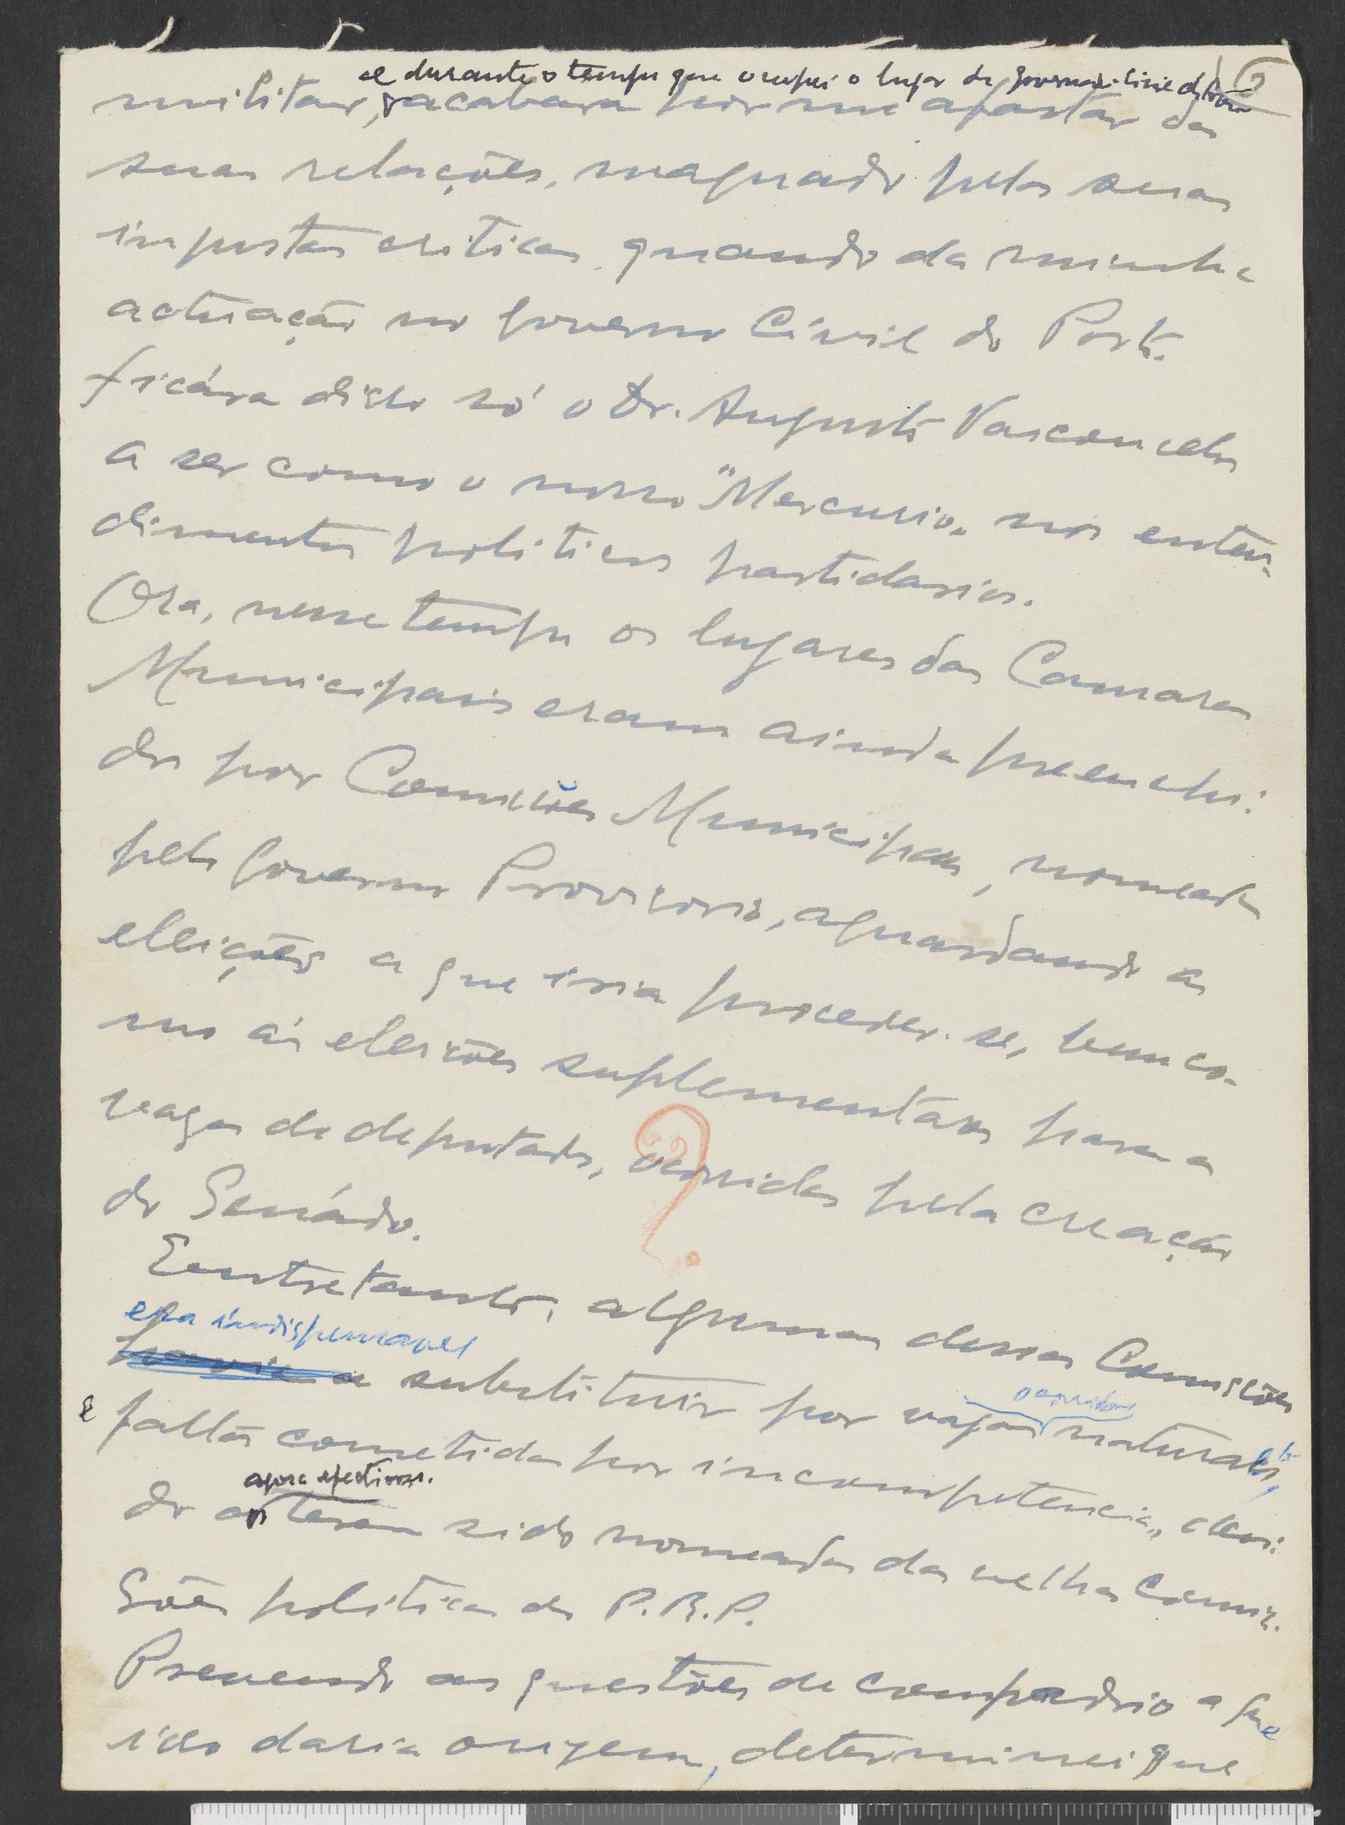 e durante o tempo que ocupei o lugar de governador civil do Porto
6
militar, acabara por me afastar das
suas relações, magoado pelas suas
injustas criticas, quando da minha
actuação no Governo Civil do Porto.
ficára disso só o Dr. Augusto Vasconcelos
a ser como o nosso "Mercurio" nos enten-
dimentos politicos partidarios.
Ora, nesse tempo os lugares das Camaras
Municipais eram ainda preenchi-
dos por Comissões Municipais, nomeadas
pelo Governo Provisorio, aguardando as
eleições a que iria proceder-se, bem co-
mo ás eleições suplementares para as
vagas de deputados, ocorridas pela creação
do Senádo.
Entretanto, algumas dessas Comissões
era indispensavel
havia a substituir por vagas naturais,
ocorridas
e faltas cometidas por incompetencia, devi-
agora efectivos.
do a terem sido nomeadas das velhas Comis-
sões politicas do P.R.P.
Prevendo as questões de compadrio a que
isso daria origem, determinei que